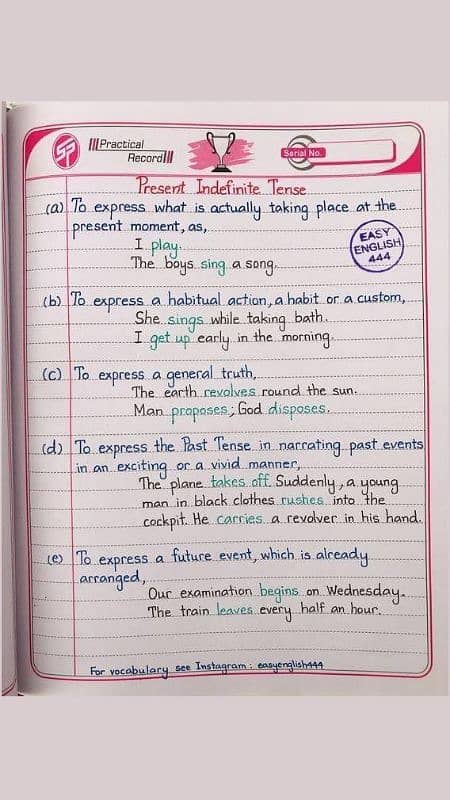 Practical
Record
Serial No.
Present Indefinite Tense
(a) To express what is actually taking place at the
present moment, as,
I play.
The boys sing a song.
EASY
ENGLISH
444
(b) To express a habitual action, a habit or a custom,
She sings while taking bath.
I get up early in the morning.
(c) To express a general truth,
The earth revolves round the sun.
Man proposes; God disposes.
(d) To express the Past Tense in narrating past events
in an exciting or a vivid manner,
The plane takes off. Suddenly, a young
man in black clothes rushes into the
cockpit. He carries a revolver in his hand.
(e) To express a future event, which is already
arranged,
Our examination begins on Wednesday.
The train leaves every half an hour.
For vocabulary see Instagram : easyenglish444